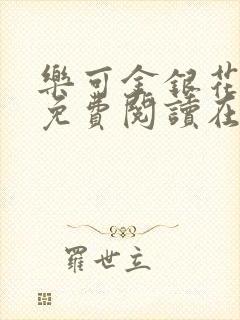 樂可金銀花
免費閱讀在
羅世立